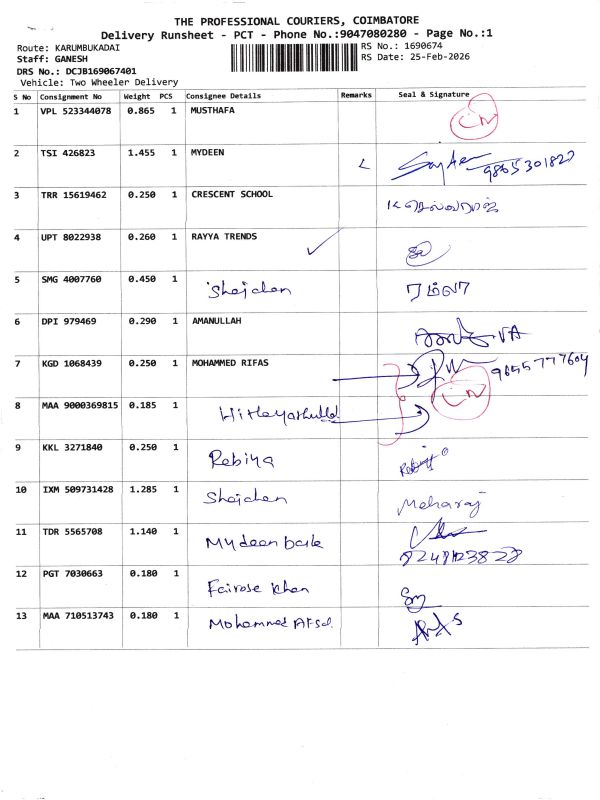 THE PROFESSIONAL COURIERS, COIMBATORE
Delivery Runsheet - PCT - Phone No.:9047080280 - Page No.:1
Route: KARUMBUKADAI RS No.: 1690674
Staff: GANESH RS Date: 25-Feb-2026
DRS No.: DCJB169067401
Vehicle: Two Wheeler Delivery
S No Consignment No Weight PCS Consignee Details Remarks Seal & Signature
1 VPL 523344078 0.865 1 MUSTHAFA
2 TSI 426823 1.455 1 MYDEEN 9865301827
3 TRR 15619462 0.250 1 CRESCENT SCHOOL
4 UPT 8022938 0.260 1 RAYYA TRENDS
5 SMG 4007760 0.450 1 Shajahan ரம்லா
6 DPI 979469 0.290 1 AMANULLAH
7 KGD 1068439 0.250 1 MOHAMMED RIFAS 9655777604
8 MAA 9000369815 0.185 1
9 KKL 3271840 0.250 1 Rebiya
10 IXM 509731428 1.285 1 Shajahan Meharaj
11 TDR 5565708 1.140 1 Mydeen
12 PGT 7030663 0.180 1 Fairose Khan
13 MAA 710513743 0.180 1 Mohammed Afsal